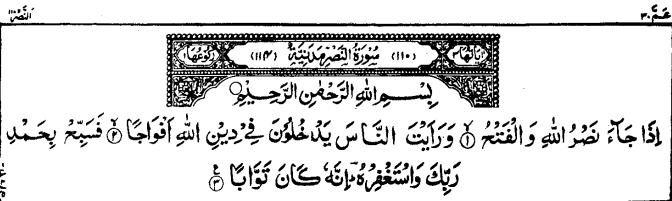 عٓمّ ۳۰
النّصر ۱۱۰
اٰیَاتُهَا ۳ (۱۱۰) سُوْرَةُ النَّصْرِ مَدَنِیَّةٌ (۱۱۴) رُكُوْعُهَا ۱
بِسْمِ اللهِ الرَّحْمٰنِ الرَّحِیْمِ
اِذَا جَآءَ نَصْرُ اللهِ وَ الْفَتْحُ ۙ۱ وَ رَاَیْتَ النَّاسَ یَدْخُلُوْنَ فِیْ دِیْنِ اللهِ اَفْوَاجًا ۙ۲ فَسَبِّحْ بِحَمْدِ
رَبِّكَ وَ اسْتَغْفِرْهُ ؕ اِنَّهٗ كَانَ تَوَّابًا ۠۳